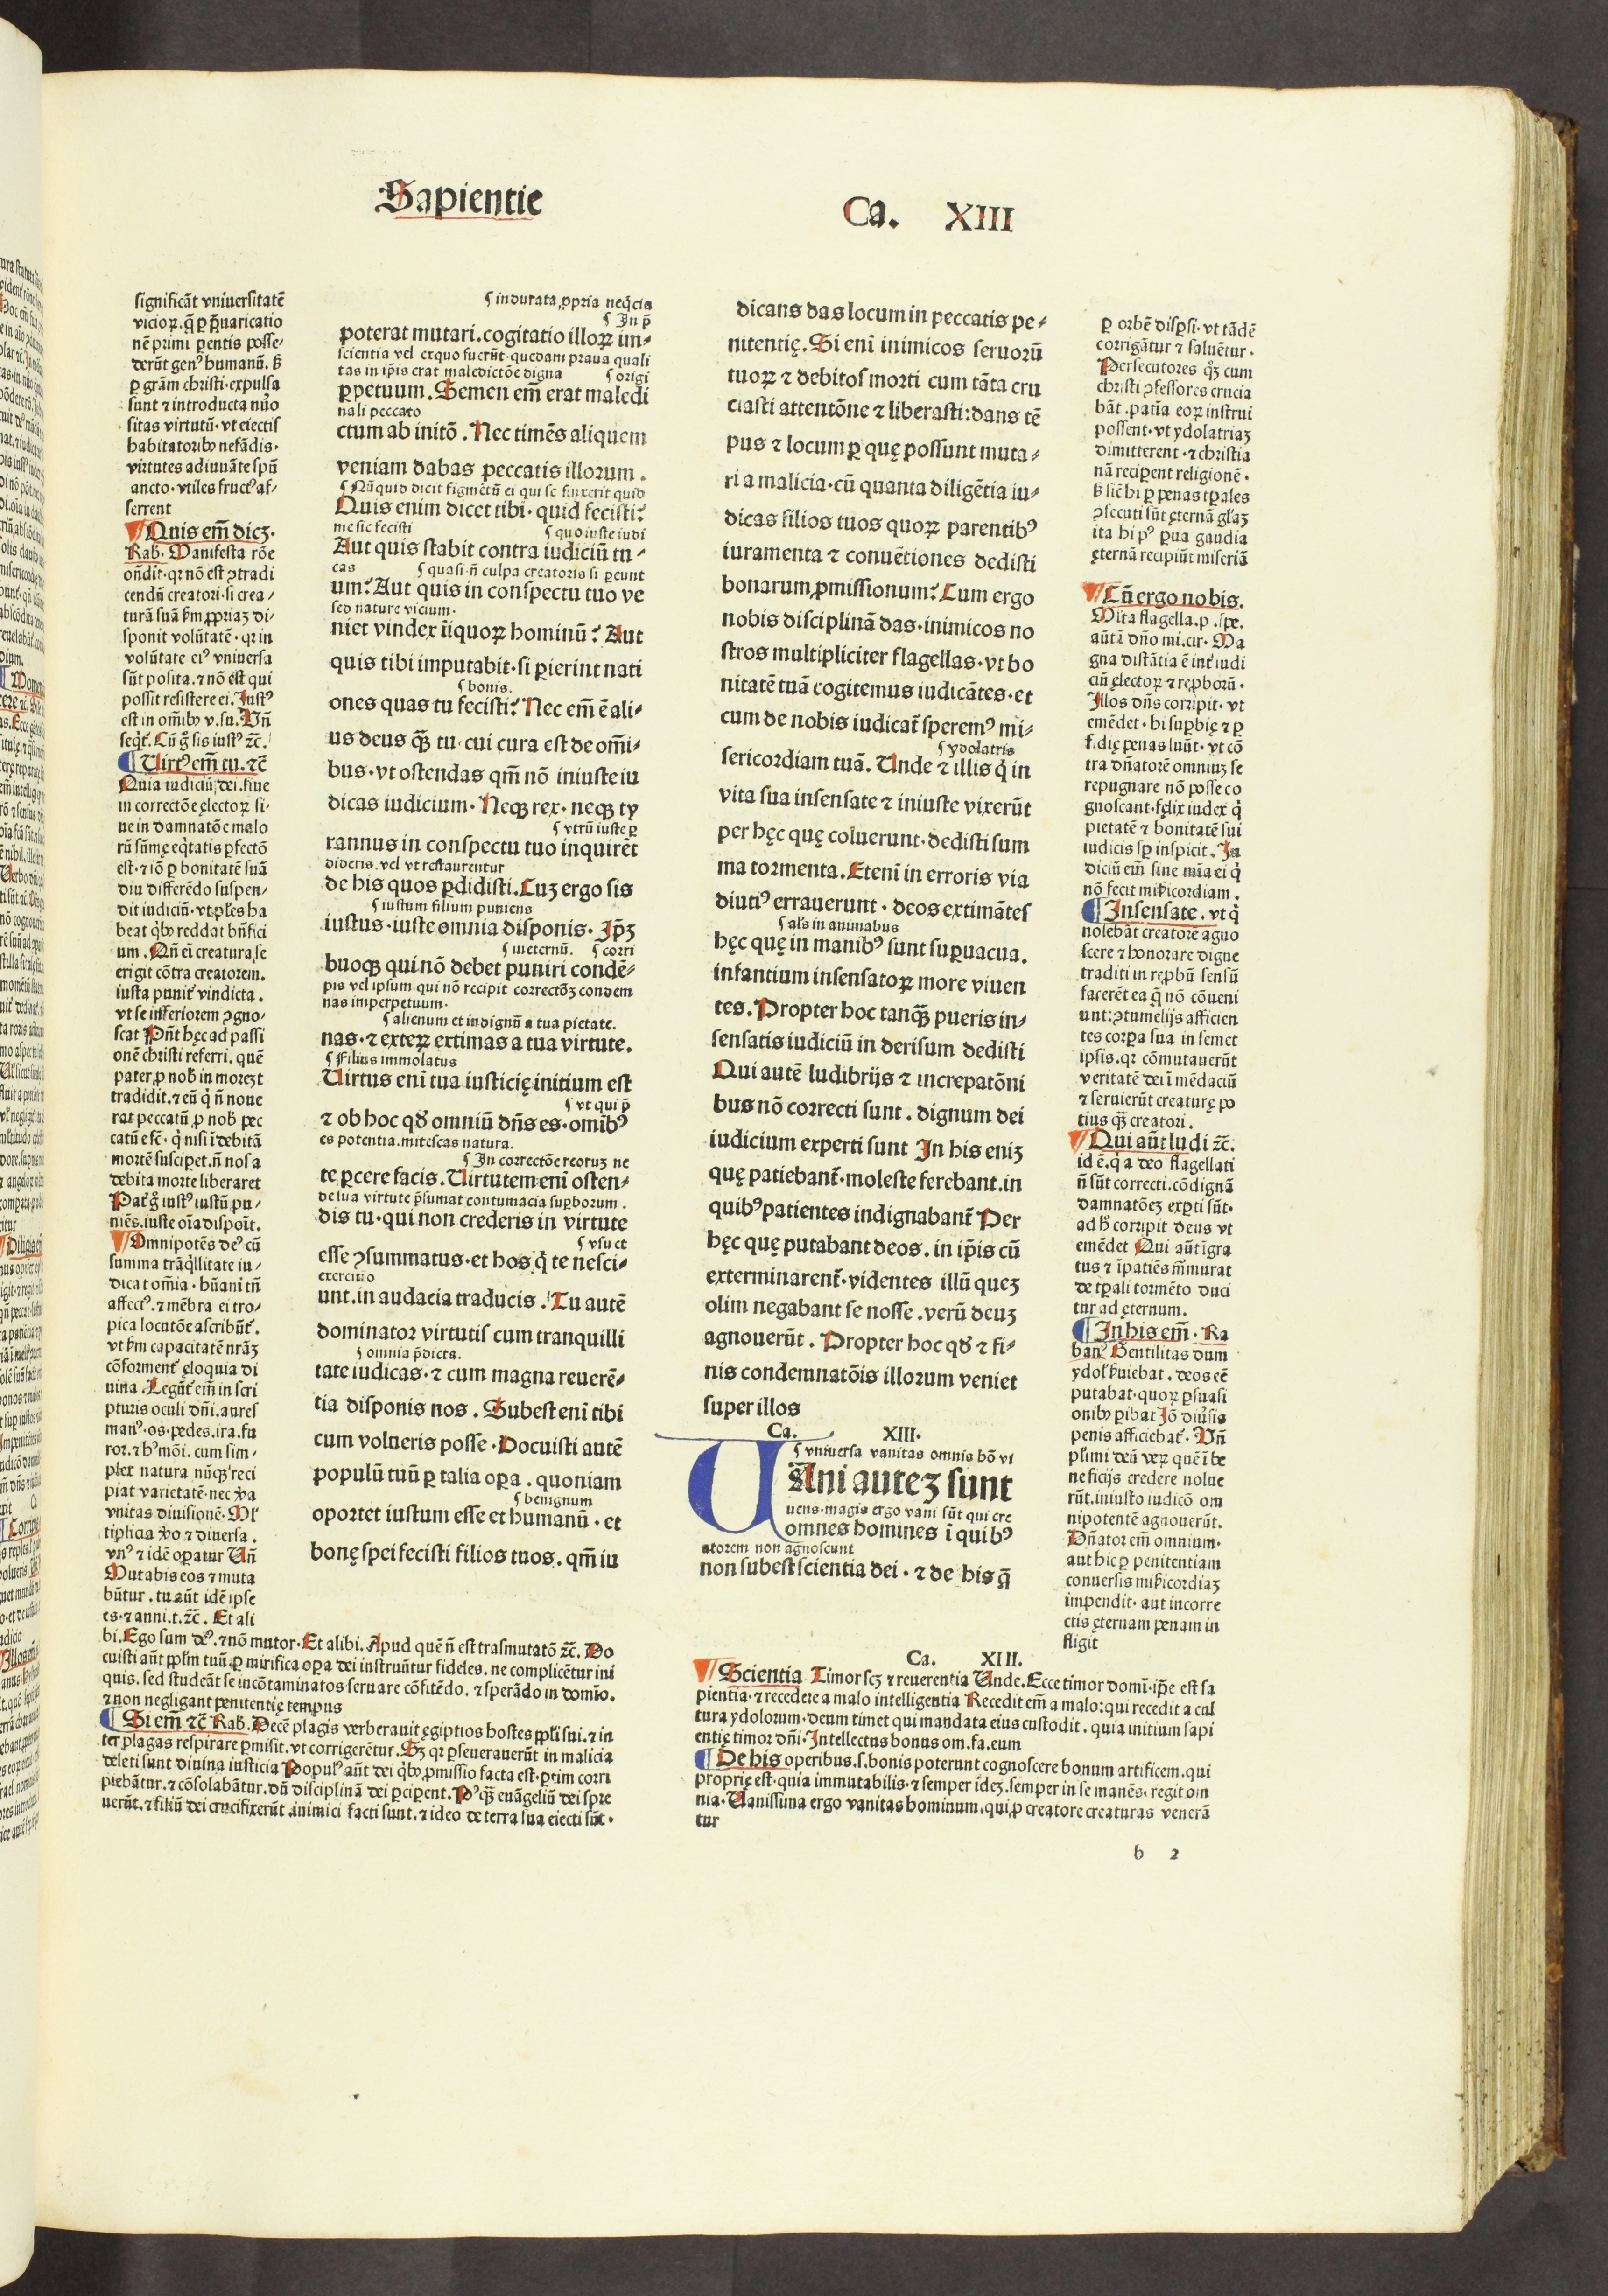 Sapientie
Ca. XIII
significãt vniuersitatẽ
vicioꝝ. q̃ ꝑ p̃uaricatio
nẽ primi ꝑentis posse⸗
derũt genꝰ humanũ. ß
ꝑ grãm christi. expulsa
sunt ⁊ introducta nũo
sitas virtutũ. vt eiectis
habitatoribꝰ nefãdis.
virtutes adiuuãte spũ
ancto. vtiles fructꝰ af⸗
ferrent
Quis em̃ dicꝫ.
Rab. Manifesta rõe
oñdit. qꝛ nõ est ꝯtradi
cendũ creatori. si crea⸗
turã suã ẜm ꝓpriaꝫ di⸗
sponit volũtatẽ. qꝛ in
volũtate eiꝰ vniuersa
sũt posita. ⁊ nõ est qui
possit resistere ei. Iustꝰ
est in om̃ibꝰ v. su. Vñ
seqͥt̃. Cũ g̊ sis iustꝰ ⁊c̃.
Uirtꝰ em̃ tu. ⁊c̃
Quia iudiciũ dei. siue
in correctõe ęlectoꝝ si⸗
ue in damnatõe malo
rũ sũmę eq̃tatis ꝑfectõ
est. ⁊ iõ ꝑ bonitatẽ suã
diu differẽdo suspen⸗
dit iudiciũ. vt ꝑles ha
beat qͥbꝰ reddat bñfici
um. Qñ eĩ creatura se
erigit cõtra creatorem.
iusta punit̃ vindicta.
vt se inferiorem ꝯgno⸗
scat. Pñt hęc ad passi
onẽ christi referri. quẽ
pater ꝓ nob̃ in morteꝫ
tradidit. ⁊ eũ q̃ ñ noue
rat peccatũ ꝓ nob̃ pec
catũ efc̃. q̃ nisi ĩdebitã
mortẽ susciꝑet. ñ nos a
debita morte liberaret
Pat̃ g̊ iustꝰ iustũ pu⸗
niẽs. iuste oĩa dispoĩt.
Omnipotẽs deꝰ cũ
summa trãq̃llitate iu⸗
dicat om̃ia. hũani tñ
affectꝰ. ⁊ mẽbra ei tro⸗
pica locutõe ascribũt̃.
vt ẜm capacitatẽ nrãꝫ
cõforment̃ ęloquia di
uina. Legũt̃ em̃ in scri
pturis oculi dñi. aures
manꝰ. os. pedes. ira. fu
ror. ⁊ hꝰ mõi. cum sim⸗
plex natura nũqꝫ reci
piat varietatẽ. nec v̾a
vnitas diuisionẽ. Ml̃
tiplicia v̾o ⁊ diuersa.
vnꝰ ⁊ idẽ oꝑatur Uñ
Mutabis eos ⁊ muta
bũtur. tu aũt idẽ ipse
es. ⁊ anni. t. ⁊c̃. Et ali
bi. Ego sum dꝰ. ⁊ nõ mutor. Et alibi. Apud quẽ ñ est trasmutatõ ⁊c̃. Do
cuisti aũt pp̃lm tuũ ꝑ mirifica oꝑa dei instruũtur fideles. ne complicẽtur ini
quis. sed studeãt se incõtaminatos seruare cõfitẽdo. ⁊ sperãdo in domĩo.
⁊ non negligant penitentię tempus
Si em̃ ⁊c̃ Rab. Decẽ plagis verberauit ęgiptios hostes pp̃li sui. ⁊ in
ter plagas respirare ꝑmisit. vt corrigerẽtur. Sꝫ qꝛ ꝑseuerauerũt in malicia
deleti sunt diuina iusticia Populꝰ aũt dei qͥbꝰ ꝓmissio facta est. ꝑtim corri
piebãtur. ⁊ cõsolabãtur. dũ disciplinã dei ꝑciꝑent. Pꝰ qꝫ euãgeliũ dei spre
uerũt. ⁊ filiũ dei crucifixerũt. inimici facti sunt. ⁊ ideo de terra sua eiecti sũt.
indurata ꝓpria neq̃cia
In p̃
poterat mutari. cogitatio illoꝝ im⸗
scientia vel exquo fuerũt. quedam praua quali
tas in ip̃is erat maledictõe digna origi
ꝑpetuum. Semen em̃ erat maledi
nali peccato
ctum ab initõ. Nec timẽs aliquem
veniam dabas peccatis illorum.
Nũquid dicit figmẽtũ ei qui se finxerit quid
Quis enim dicet tibi. quid fecisti?
me sic fecisti quo iuste iudi
Aut quis stabit contra iudiciũ tu⸗
cas quasi ñ culpa creatoris si ꝑeunt
um? Aut quis in conspectu tuo ve
sed nature vicium.
niet vindex iĩquoꝝ hominũ? Aut
quis tibi imputabit. si ꝑierint nati
bonis.
ones quas tu fecisti? Nec em̃ ẽ ali⸗
us deus qꝫ tu. cui cura est de om̃i⸗
bus. vt ostendas qm̃ nõ iniuste iu
dicas iudicium. Neqꝫ rex. neqꝫ ty
vtrũ iuste ꝑ
rannus in conspectu tuo inquirẽt
dideris. vel vt restaurentur
de his quos ꝑdidisti. Cuꝫ ergo sis
iustum filium puniens
iustus. iuste omnia disponis. Ip̃ꝫ
ineternũ. corri
buoqꝫ qui nõ debet puniri condẽ⸗
pis vel ipsum qui nõ recipit correctõꝫ condem
nas imperpetuum.
alienum et indignũ a tua pietate.
nas. ⁊ exteꝝ extimas a tua virtute.
Filius immolatus
Uirtus enĩ tua iusticię initium est
vt qui p̃
⁊ ob hoc qđ omniũ dñs es. omĩbꝰ
es potentia. mitescas natura.
In correctõe reoruꝫ ne
te ꝑcere facis. Uirtutem enĩ osten⸗
de sua virtute p̃sumat contumacia suꝑborum.
dis tu. qui non crederis in virtute
vsu et
esse ꝯsummatus. et hos q̃ te nesci⸗
exercitio
unt. in audacia traducis. Tu autẽ
dominator virtutis cum tranquilli
omnia p̃dicta.
tate iudicas. ⁊ cum magna reuerẽ⸗
tia disponis nos. Subest enĩ tibi
cum volueris posse. Docuisti autẽ
populũ tuũ ꝑ talia oꝑa. quoniam
benignum
oportet iustum esse et humanũ. et
bonę spei fecisti filios tuos. qm̃ iu
dicans das locum in peccatis pe⸗
nitentię. Si enĩ inimicos seruorũ
tuoꝝ ⁊ debitos morti cum tãta cru
ciasti attentõne ⁊ liberasti: dans tẽ
pus ⁊ locum ꝑ quę possunt muta⸗
ri a malicia. cũ quanta diligẽtia iu⸗
dicas filios tuos quoꝝ parentibꝰ
iuramenta ⁊ conuẽtiones dedisti
bonarum ꝓmissionum? Cum ergo
nobis disciplinã das. inimicos no
stros multipliciter flagellas. vt bo
nitatẽ tuã cogitemus iudicãtes. et
cum de nobis iudicat̃ speremꝰ mi⸗
ydolatris
sericordiam tuã. Unde ⁊ illis q̃ in
vita sua insensate ⁊ iniuste vixerũt
per hęc quę coluerunt. dedisti sum
ma tormenta. Etenĩ in erroris via
diutiꝰ errauerunt. deos extimãtes
als in animabus
hęc quę in manibꝰ sunt suꝑuacua.
infantium insensatoꝝ more viuen
tes. Propter hoc tanqꝫ pueris in⸗
sensatis iudiciũ in derisum dedisti
Qui autẽ ludibrijs ⁊ increpatõni
bus nõ correcti sunt. dignum dei
iudicium experti sunt In his eniꝫ
quę patiebant̃. moleste ferebant. in
quibꝰ patientes indignabant̃ Per
hęc quę putabant deos. in ip̃is cũ
exterminarent̃. videntes illũ queꝫ
olim negabant se nosse. verũ deuꝫ
agnouerũt. Propter hoc qđ ⁊ fi⸗
nis condemnatõis illorum veniet
super illos
Ca. XIII.
vniuersa vanitas omnis hõ vi
UAni auteꝫ sunt
uens. magis ergo vani sũt qui cre
omnes homines ĩ quibꝰ
atorem non agnoscunt
non subest scientia dei. ⁊ de his q̃
ꝑ orbẽ disꝑsi. vt tãdẽ
corrigãtur ⁊ saluẽtur.
Persecutores qͦꝫ cum
christi ꝯfessores crucia
bãt. patĩa eoꝝ instrui
possent. vt ydolatriaꝫ
dimitterent. ⁊ christia
nã reciꝑent religionẽ.
ß sic̃ hi ꝑ penas tꝑales
ꝯsecuti sũt ęternã gl̃aꝫ
ita hi pꝰ ꝑua gaudia
ęternã recipiũt miseriã
Cũ ergo nobis.
Mĩta flagella. p. spe.
aũt ĩ dño mi. cir. Ma
gna distãtia ẽ int̃ iudi
ciũ ęlectoꝝ ⁊ reꝓborũ.
Illos dñs corripit. vt
emẽdet. hi suꝑbię ⁊ ꝑ
fidię penas luũt. vt cõ
tra dñatorẽ omniuꝫ se
repugnare nõ posse co
gnoscant. fęlix iudex q̃
pietatẽ ⁊ bonitatẽ sui
iudicis sꝑ inspicit. Iu
diciũ em̃ sine mĩa ei q̃
nõ fecit mĩẜicordiam.
Insensate. vt q̃
nolebãt creatorẽ agno
scere ⁊ honorare digne
traditi in reꝓbũ sensũ
facerẽt ea q̃ nõ cõueni
unt: ꝯtumelijs afficien
tes corꝑa sua in semet
ipsis. qꝛ cõmutauerũt
veritatẽ dei ĩ mẽdaciũ
⁊ seruierũt creaturę po
tius qꝫ creatori.
Qui aũt ludi ⁊c̃.
id ẽ. q̃a deo flagellati
ñ sũt correcti. cõdignã
damnatõeꝫ exꝑti sũt.
ad h̾ corripit deus vt
emẽdet Qui aũt ĩgra
tus ⁊ ĩpatiẽs m̃murat
de tꝑali tormẽto duci
tur ad ęternum.
In his em̃. Ra
banꝰ Gentilitas dum
ydol̃ ẜuiebat. deos eẽ
putabat. quoꝝ ꝑsuasi
onibꝰ ꝑibat Iõ diũsis
penis afficiebat̃. Vñ
pl̃imi deũ veꝝ quẽ ĩ be
neficijs credere nolue
rũt. iniusto iudicõ om
nipotentẽ agnouerũt.
Dñator em̃ omnium.
aut hic ꝑ penitentiam
conuersis mĩẜicordiaꝫ
impendit. aut incorre
ctis ęternam penam in
fligit
Ca. XIII.
Scientia Timor scꝫ ⁊ reuerentia Unde. Ecce timor domĩ. ip̃e est sa
pientia. ⁊ recedere a malo intelligentia Recedit em̃ a malo: qui recedit a cul
tura ydolorum. deum timet qui mandata eius custodit. quia initium sapi
entię timor dñi. Intellectus bonus om. fa. eum
De his operibus. s. bonis poterunt cognoscere bonum artificem. qui
proprię est. quia immutabilis. ⁊ semper ideꝫ. semper in se manẽs. regit om
nia. Uanissima ergo vanitas hominum. qui ꝓ creatore creaturas venerã
tur
b 2